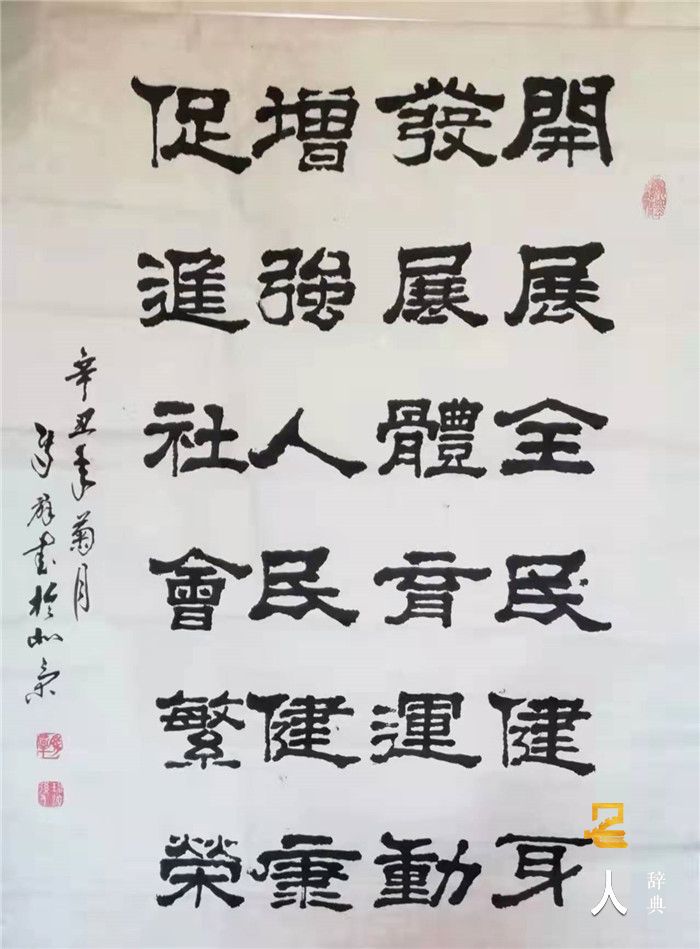 開展全民健身
發展體育運動
增強人民健康
促進社會繁榮
辛丑年菊月
群書於北京
名人
辞典